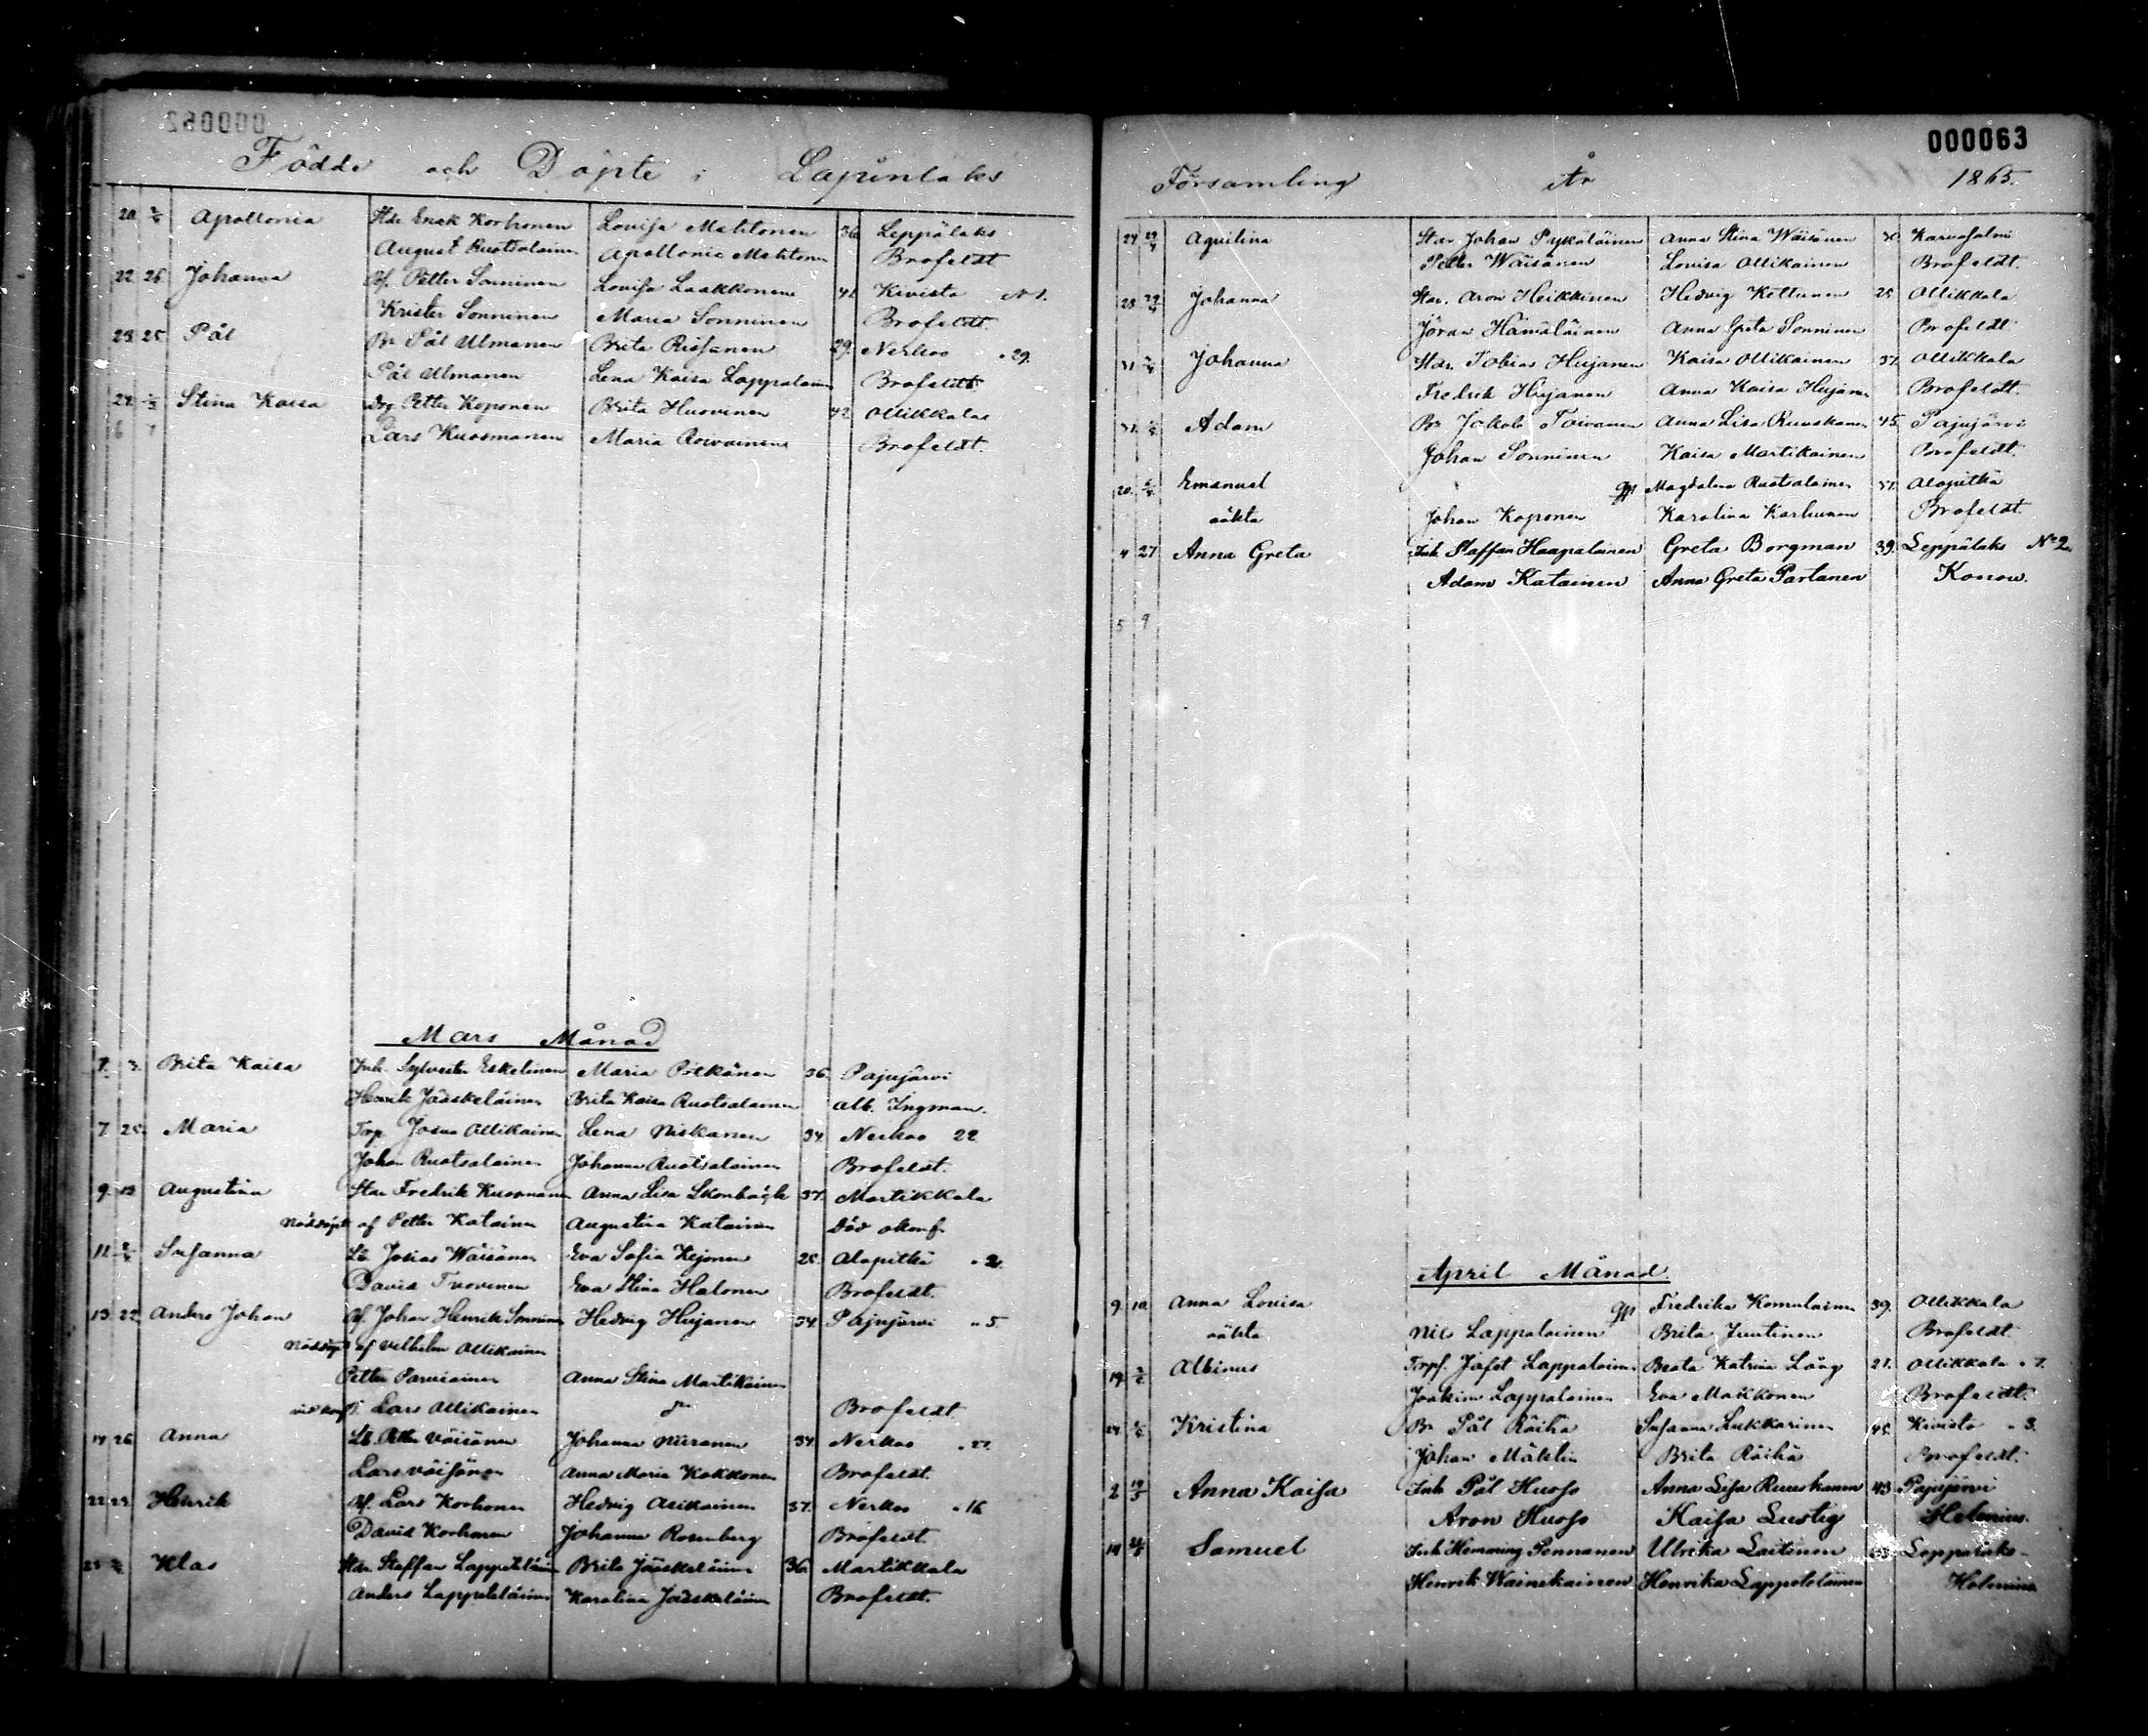 000062
Födde och Döpte i Lapinlaks
20. Apollonia Stdr Enok Korhonen Lovisa Mehtonen 36 Leppälaks
August Ruotsalainen Apollonia Mehtonen Brofeldt
22. 26 Johanna Bf. Petter Sonninen Lovisa Laakkonen 41 Kivistö N 1.
Krister Sonninen Maria Sonninen Brofeldt.
23. 25 Pål Br Pål Ulmanen Brita Rissanen 29. Nerkoo " 29.
Pål Ulmanen Lena Kaisa Lappalainen Brofeldt.
24. Stina Kaisa Drg Petter Koponen Brita Huovinen 42 Ollikkala
6 7 Lars Kuosmanen Maria Roivainen Brofeldt.
Mars Månad
7. 3. Brita Kaisa Inh. Sylvester Eskelinen Maria Pitkänen 36. Pajujärvi
Henrik Jääskeläinen Brita Kaisa Ruotsalainen Alb. Ingman.
7. 25. Maria Torp Josua Ollikainen Lena Niskanen 34. Nerkoo 22
Johan Ruotsalainen Johanna Ruotsalainen Brofeldt.
9. 12 Augustina Stdr Fredrik Kuosmanen Anna Lisa 37. Martikkala
Nöddöpt af Petter Katainen Augustina Katainen Död okonf.
11. Susanna Lb. Josias Wäisänen Eva Sofia Kejonen 25. Alapitkä " 2.
David Tuovinen Eva Stina Halonen Brofeldt.
13. 22 Anders Johan Bf. Johan Henrik Sonninen Hedvig Hujanen 34. Pajujärvi " 5.
Nöddöpt af Vilhelm Ollikainen
Petter Parviainen Anna Stina Martikainen
vid konf. Lars Ollikainen Brofeldt.
14 26 Anna Lb. Petter Väisänen Johanna Niiranen 34. Nerkoo " 27.
Lars Väisänen Anna Maria Kokkonen Brofeldt.
22 29. Henrik Bf. Lars Korhonen Hedvig Asikainen 37. Nerkoo " 16
David Korhonen Johanna Rosenberg Brofeldt.
25 Klas Stdr Staffan Lappeteläinen Brita Jääskeläinen 36. Martikkala
Anders Lappeteläinen Karolina Jääskeläinen Brofeldt.
000063
Församling År 1865.
24 Aquilina Stdr Johan Pyykäläinen Anna Stina Wäisänen 30. Karvasalmi
Petter Wäisänen Lovisa Ollikainen Brofeldt.
28 Johanna Stdr. Aron Heikkinen Hedvig Kettunen 25 Ollikkala
Jöran Hämäläinen Anna Greta Sonninen Brofeldt
31 Johanna Stdr. Tobias Hujanen Kaisa Ollikainen 37. Ollikkala
Fredrik Hujanen Anna Kaisa Hujanen Brofeldt.
31. Adam Br Jakob Toivanen Anna Lisa Ruuskanen 45. Pajujärvi
Johan Sonninen Kaisa Martikainen Brofeldt.
20. Emanuel qp Magdalena Ruotsalainen 37. Alapitkä
oäkta Johan Koponen Karolina Karhunen Brofeldt.
4 27 Anna Greta Inh Staffan Haapalainen Greta Borgman 39. Leppälaks No 2.
Adam Katainen Anna Greta Partanen Konow.
5 9
April Månad.
9. 10. Anna Lovisa qp Fredrika Komulainen 39. Ollikkala
oäkta Nils Lappalainen Brita Juutinen Brofeldt.
19. Albinus Torpf. Jafet Lappalainen Beata Katrina Lång 21. Ollikkala " 7.
Joakim Lappalainen Eva Mokkonen Brofeldt.
24. Kristina Br Pål Räihä Susanna Lukkarinen 45. Kivistö " 3.
Johan Mählin Brita Räihä Brofeldt.
2 19/5 Anna Kaisa Inh Pål Kuosa Anna Lisa Ruuskanen 43 Pajujärvi
Aron Kuosa Kaisa Lustig Helenius.
14 Samuel Inh Hemming Pennanen Ulrika Laitinen Leppälaks
Henrik Wainikainen Henrika Lappeteläinen Helenius